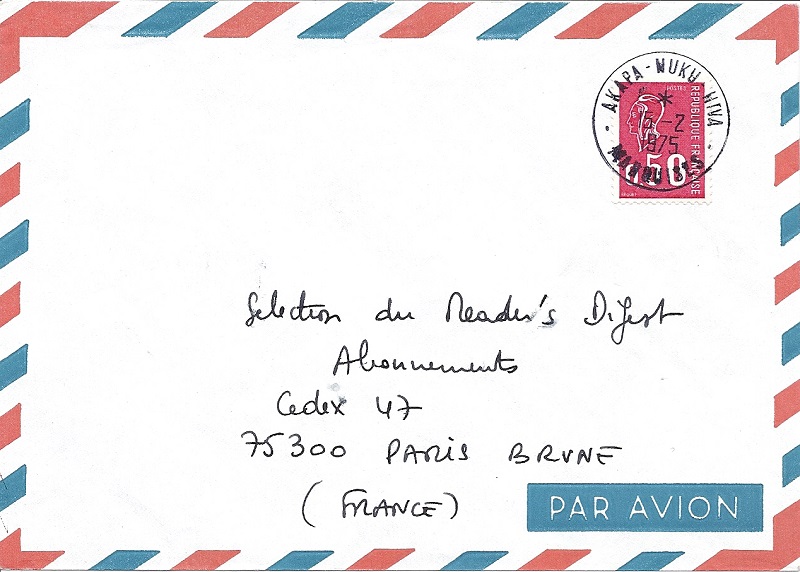 AKAPA - NUKU HIVA
*
5-2
1975
MARQUISES
POSTES
REPUBLIQUE FRANÇAISE
0.50
Selection du Reader's Digest
Abonnements
Cedex 47
75300 PARIS BRUNE
(FRANCE)
PAR AVION